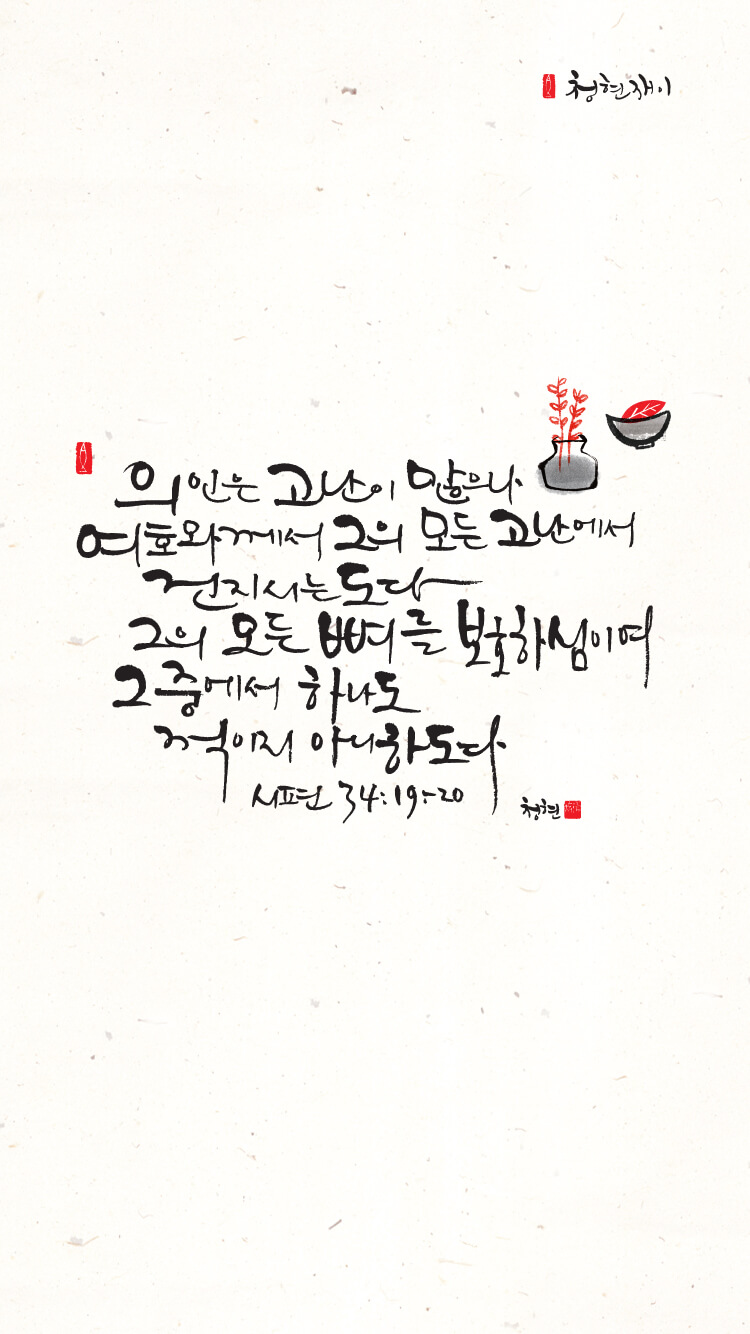 청현재이
의인은 고난이 많으나
여호와께서 그의 모든 고난에서
건지시는도다
그의 모든 뼈를 보호하심이여
그 중에서 하나도
꺽이지 아니하도다
시편 34:19-20
청현